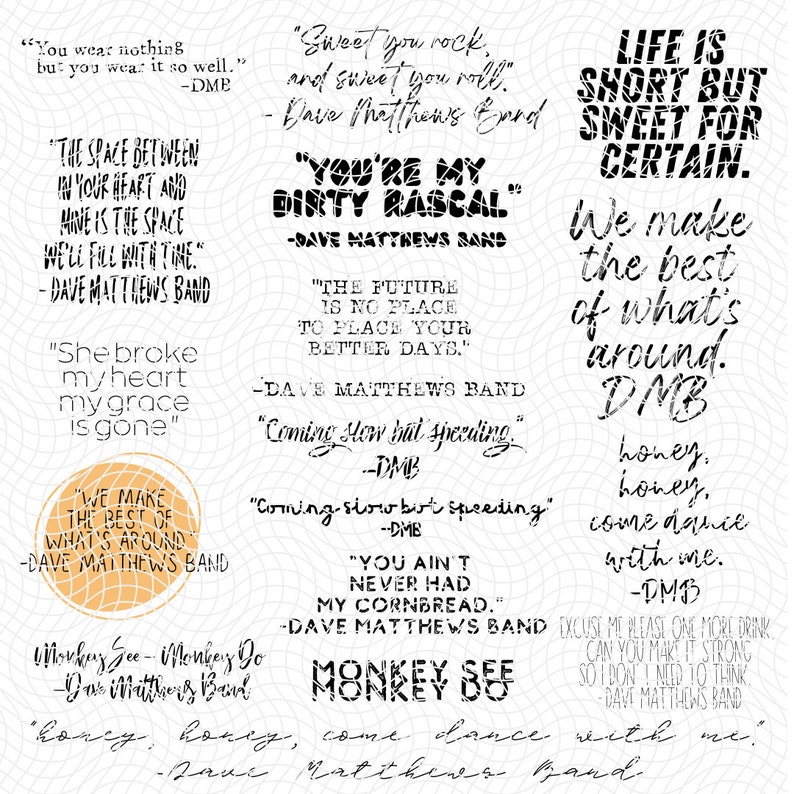 "You wear nothing
but you wear it so well."
-DMB
"THE SPACE BETWEEN
IN YOUR HEART AND
MINE IS THE SPACE
WE'LL FILL WITH TIME."
- DAVE MATTHEWS BAND
"She broke
my heart
my grace
is gone"
"WE MAKE
THE BEST OF
WHAT'S AROUND"
-DAVE MATTHEWS BAND
Monkey See - Monkey Do
-Dave Matthews Band
"Sweet you rock,
and sweet you roll".
- Dave Matthews Band
"YOU'RE MY
DIRTY RASCAL"
-DAVE MATTHEWS BAND
"THE FUTURE
IS NO PLACE
TO PLACE YOUR
BETTER DAYS."
-DAVE MATTHEWS BAND
"Coming slow but speeding."
-DMB
"Coming slow but speeding"
-DMB
"YOU AIN'T
NEVER HAD
MY CORNBREAD."
-DAVE MATTHEWS BAND
MONKEY SEE
MONKEY DO
LIFE IS
SHORT BUT
SWEET FOR
CERTAIN.
We make
the best
of what's
around.
DMB
honey,
honey,
come dance
with me.
-DMB
EXCUSE ME PLEASE ONE MORE DRINK.
CAN YOU MAKE IT STRONG
SO I DON'T NEED TO THINK.
- DAVE MATTHEWS BAND
"honey, honey, come dance with me."
-Dave Matthews Band